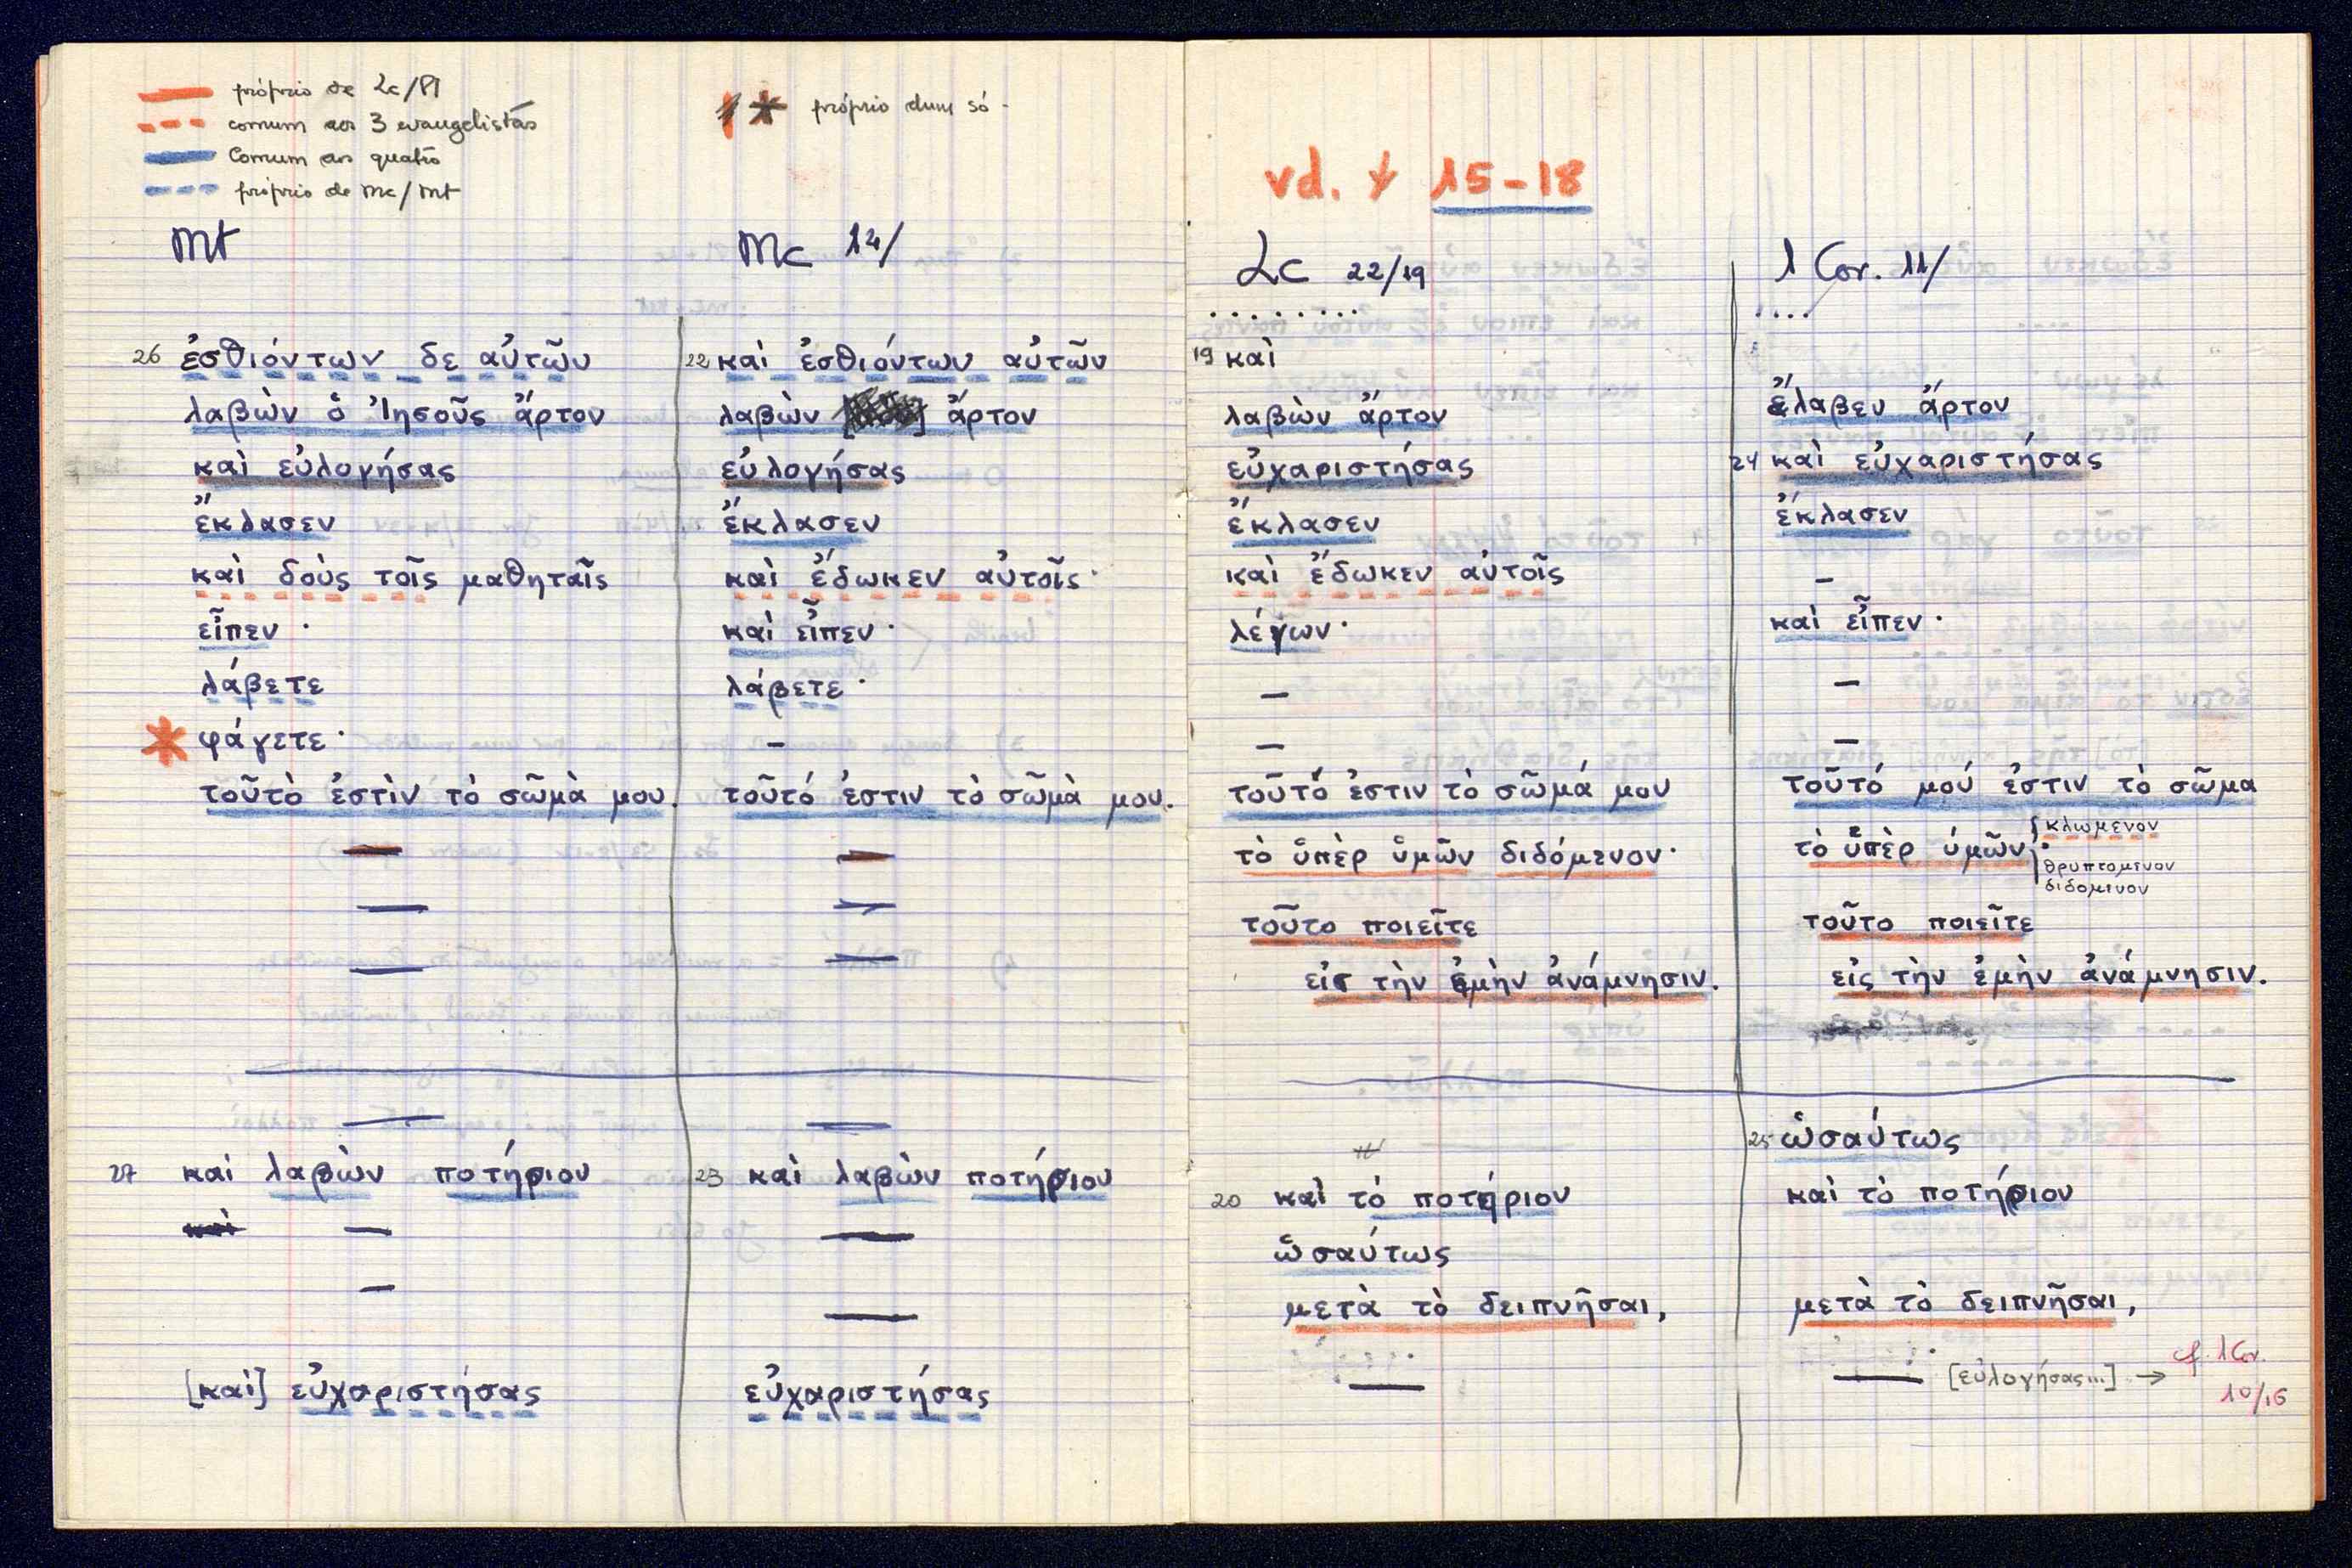 próprio de Lc/Pl
comum aos 3 evangelistas
Comum aos quatro
próprio de Mc/Mt
* próprio dum só -
Mt
26 ἐσθιόντων δε αὐτῶν
λαβὼν ὁ Ἰησοῦς ἄρτον
καὶ εὐλογήσας
ἔκλασεν
καὶ δοὺς τοῖς μαθηταῖς
εἶπεν ·
λάβετε
* φάγετε ·
τοῦτὸ ἐστὶν τὸ σῶμὰ μου.
—
—
—
—
27 καὶ λαβὼν ποτήριον
καὶ —
—
[καὶ] εὐχαριστήσας
Mc 14/
22 καὶ ἐσθιόντων αὐτῶν
λαβὼν ἄρτον
εὐλογήσας
ἔκλασεν
καὶ ἔδωκεν αὐτοῖς ·
καὶ εἶπεν ·
λάβετε ·
–
τοῦτό ἐστιν τὸ σῶμὰ μου.
—
—
—
—
23 καὶ λαβὼν ποτήριον
—
—
εὐχαριστήσας
vd. 15-18
Lc 22/19
.........
19 καὶ
λαβὼν ἄρτον
εὐχαριστήσας
ἔκλασεν
καὶ ἔδωκεν αὐτοῖς
λέγων ·
—
—
τοῦτό ἐστιν τὸ σῶμά μου
τὸ ὑπὲρ ὑμῶν διδόμενον ·
τοῦτο ποιεῖτε
εἰσ τὴν ἐμὴν ἀνάμνησιν.
20 καὶ τὸ ποτήριον
ὡσαύτως
μετὰ τὸ δειπνῆσαι,
—
1 Cor. 11/
....
ἔλαβεν ἄρτον
24 καὶ εὐχαριστήσας
ἔκλασεν
–
καὶ εἶπεν ·
—
—
τοῦτό μού ἐστιν τὸ σῶμα
τὸ ὑπὲρ ὑμῶν ·
κλωμενον
θρυπτομενον
διδομενον
τοῦτο ποιεῖτε
εἰς τὴν ἐμὴν ἀνάμνησιν.
25 ὡσαύτως
καὶ τὸ ποτήριον
μετὰ τὸ δειπνῆσαι,
— [εὐλογήσας...] → cf. 1 Cor.
10/16